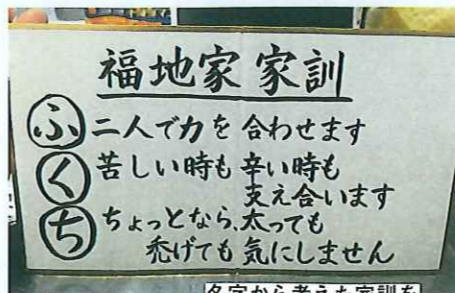 福地家 家訓
ふ 二人で力を 合わせます
く 苦しい時も 辛い時も
支え合います
ち ちょっとなら、太っても
禿げても 気にしません
名字から考えた家訓を